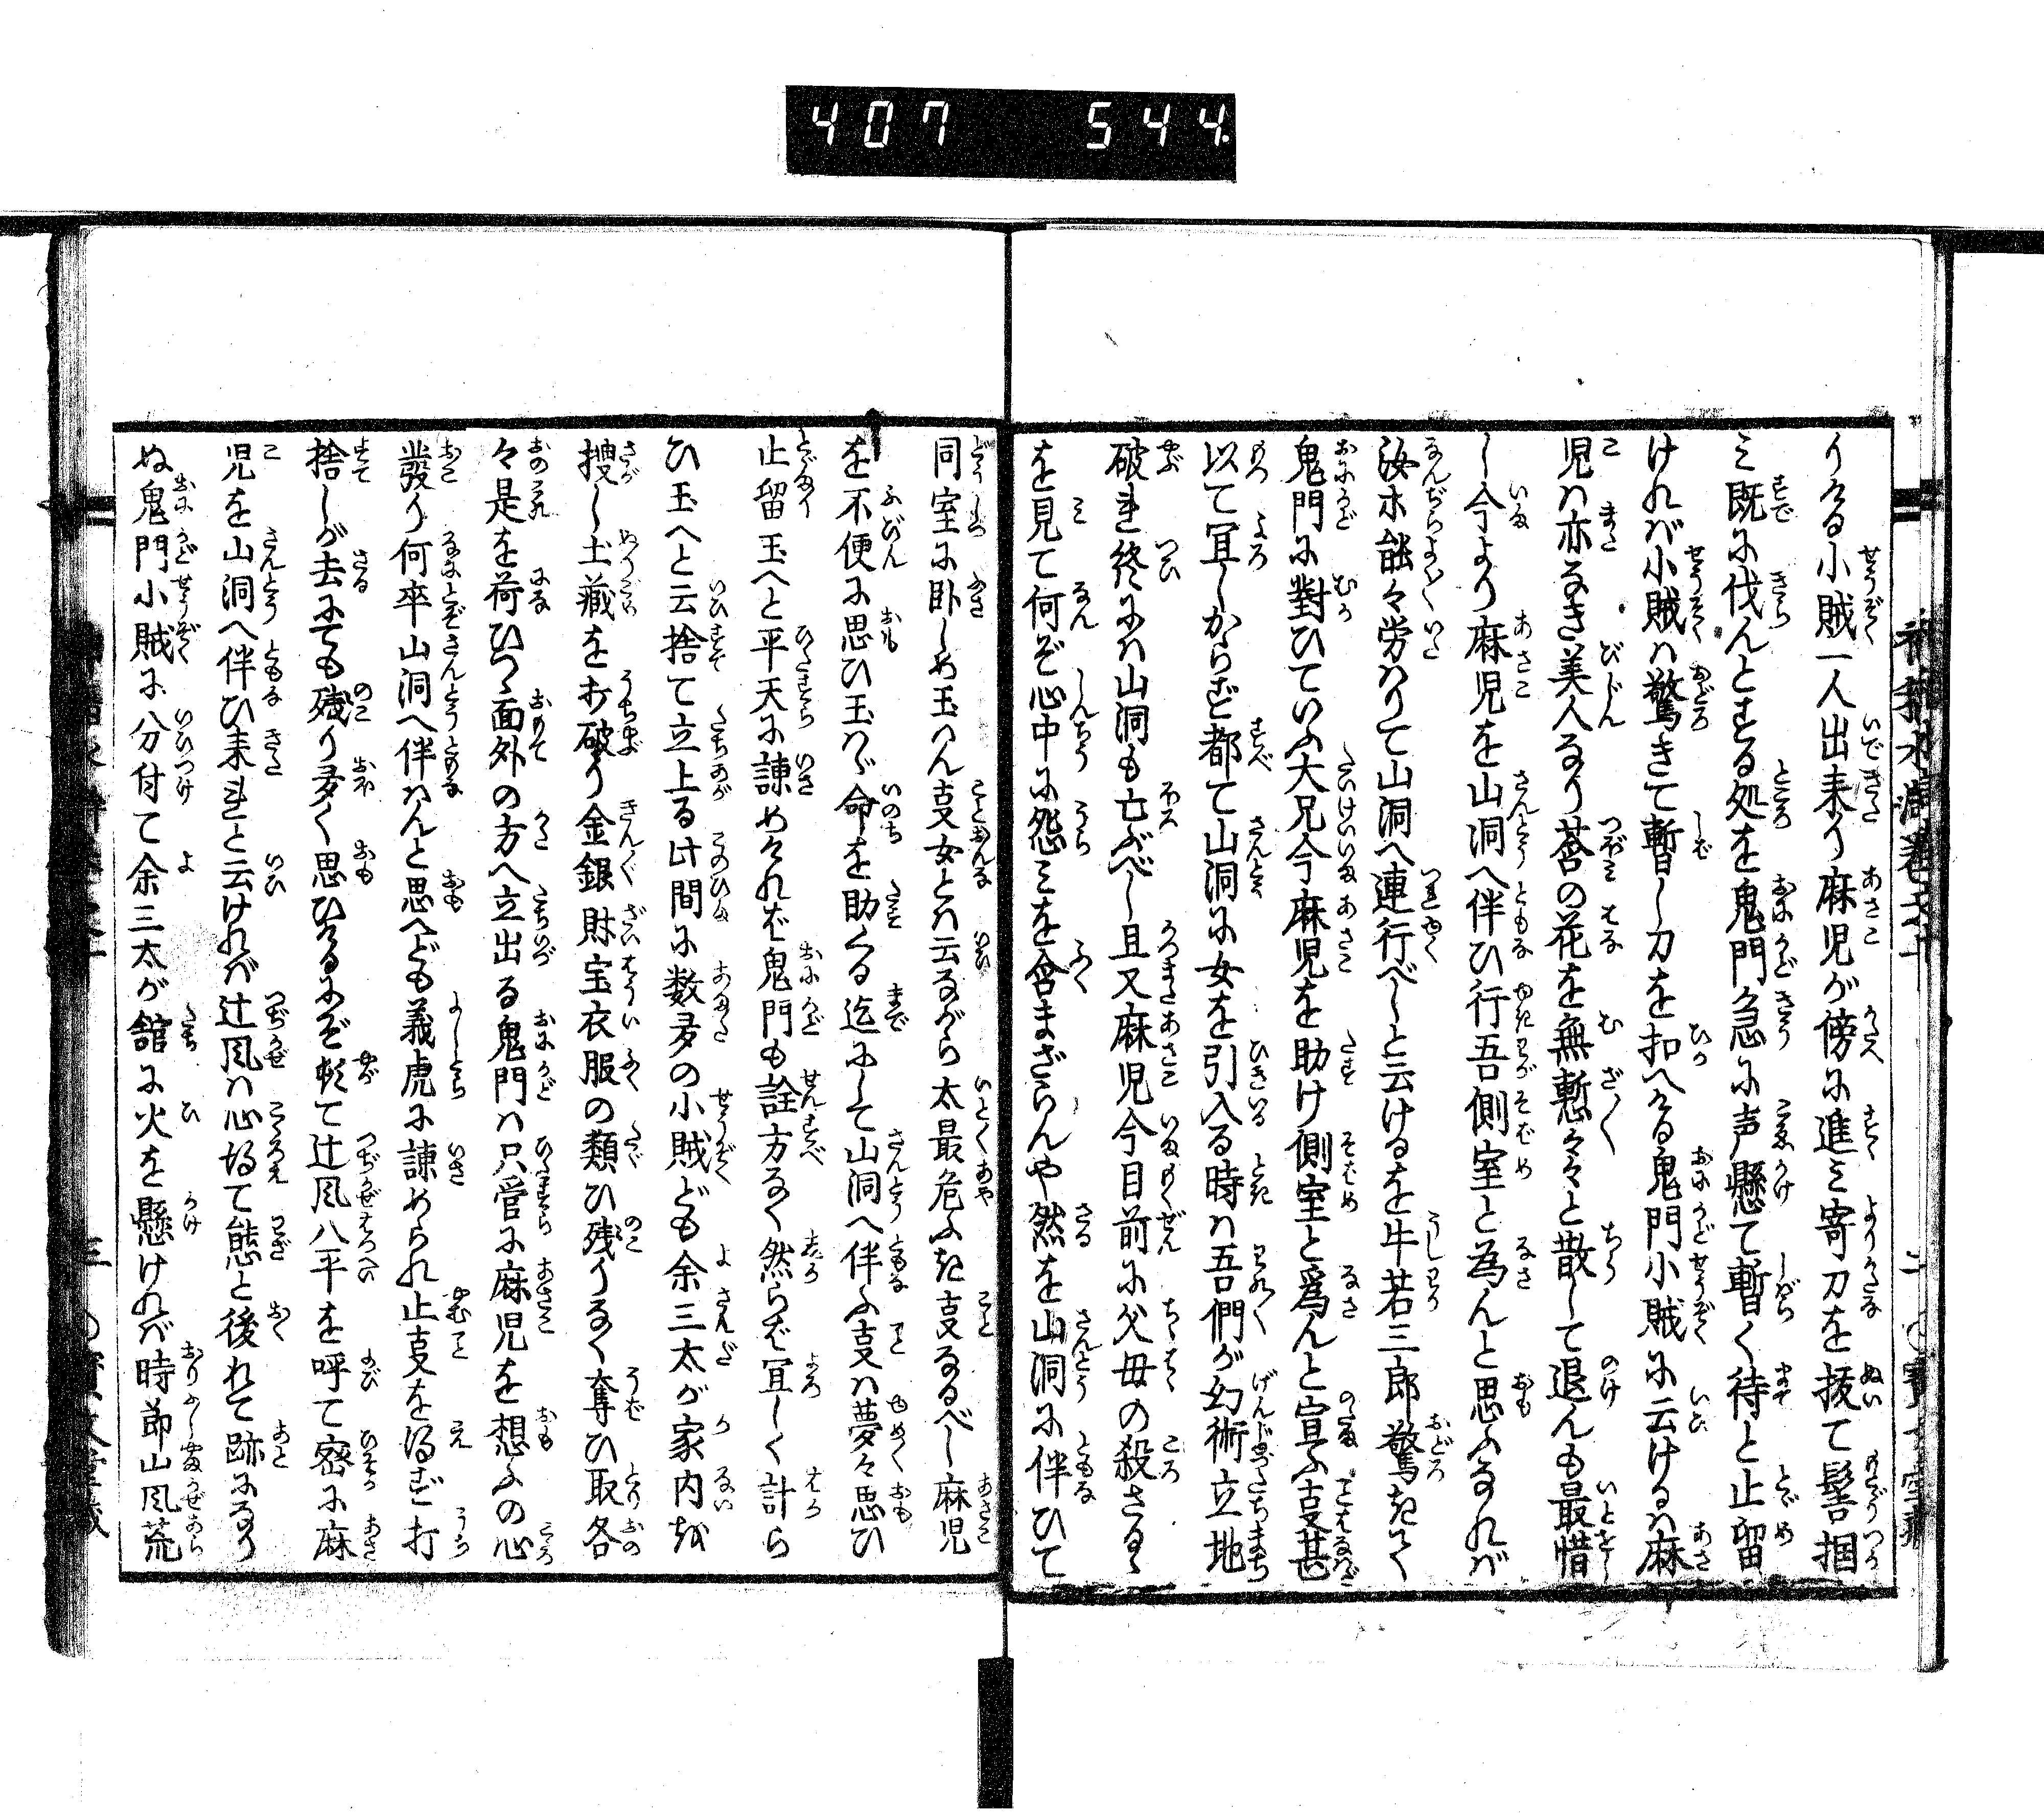 407 544.
りける小賊一人出来り麻児が傍に進ミ寄刀を抜て髻掴
ミ既に伐んとする処を鬼門急に声懸て暫く待と止留
けれバ小賊ハ驚きて暫し刀を扣へける鬼門小賊に云けるハ麻
児ハ亦なき美人なり莟の花を無慙々々と散して退んも最惜
し今より麻児を山洞へ伴ひ行吾側室と為んと思ふなれバ
汝ホ能々労ハりて山洞へ連行べしと云けるを牛若三郎驚きて
鬼門に對ひていふ大兄今麻児を助け側室と為んと宣ふ叓甚
以て冝しからず都て山洞に女を引入る時ハ吾們が幻術立地
破れ終にハ山洞も亡ぶべし且又麻児今目前に父毋の殺さるゝ
を見て何ぞ心中に怨ミを含まざらんや然を山洞に伴ひて
同室に卧しめ玉ハん叓女とハ云ながら太最危ふき叓なるべし麻児
を不便に思ひ玉ハゞ命を助くる迄にして山洞へ伴ふ叓ハ夢々思ひ
止留玉へと平天に諌めけれど鬼門も詮方なく然らど冝しく計ら
ひ玉へと云捨て立上る此間に数多の小賊ども余三太が家内を
搜し土藏を打破り金銀財宝衣服の類ひ残りなく奪ひ取各
々是を荷ひつゝ面外の方へ立出る鬼門ハ只管に麻児を想ふの心
發り何卒山洞へ伴ハんと思へども義虎に諌められ止叓を得ず打
捨しが去にても残り多く思ひけるにぞ軈て辻風八平を呼て密に麻
児を山洞へ伴ひ来れと云けれバ辻風ハ心得て態と後れて跡になり
ぬ鬼門小賊に分付て余三太が舘に火を懸けれバ時節山風荒